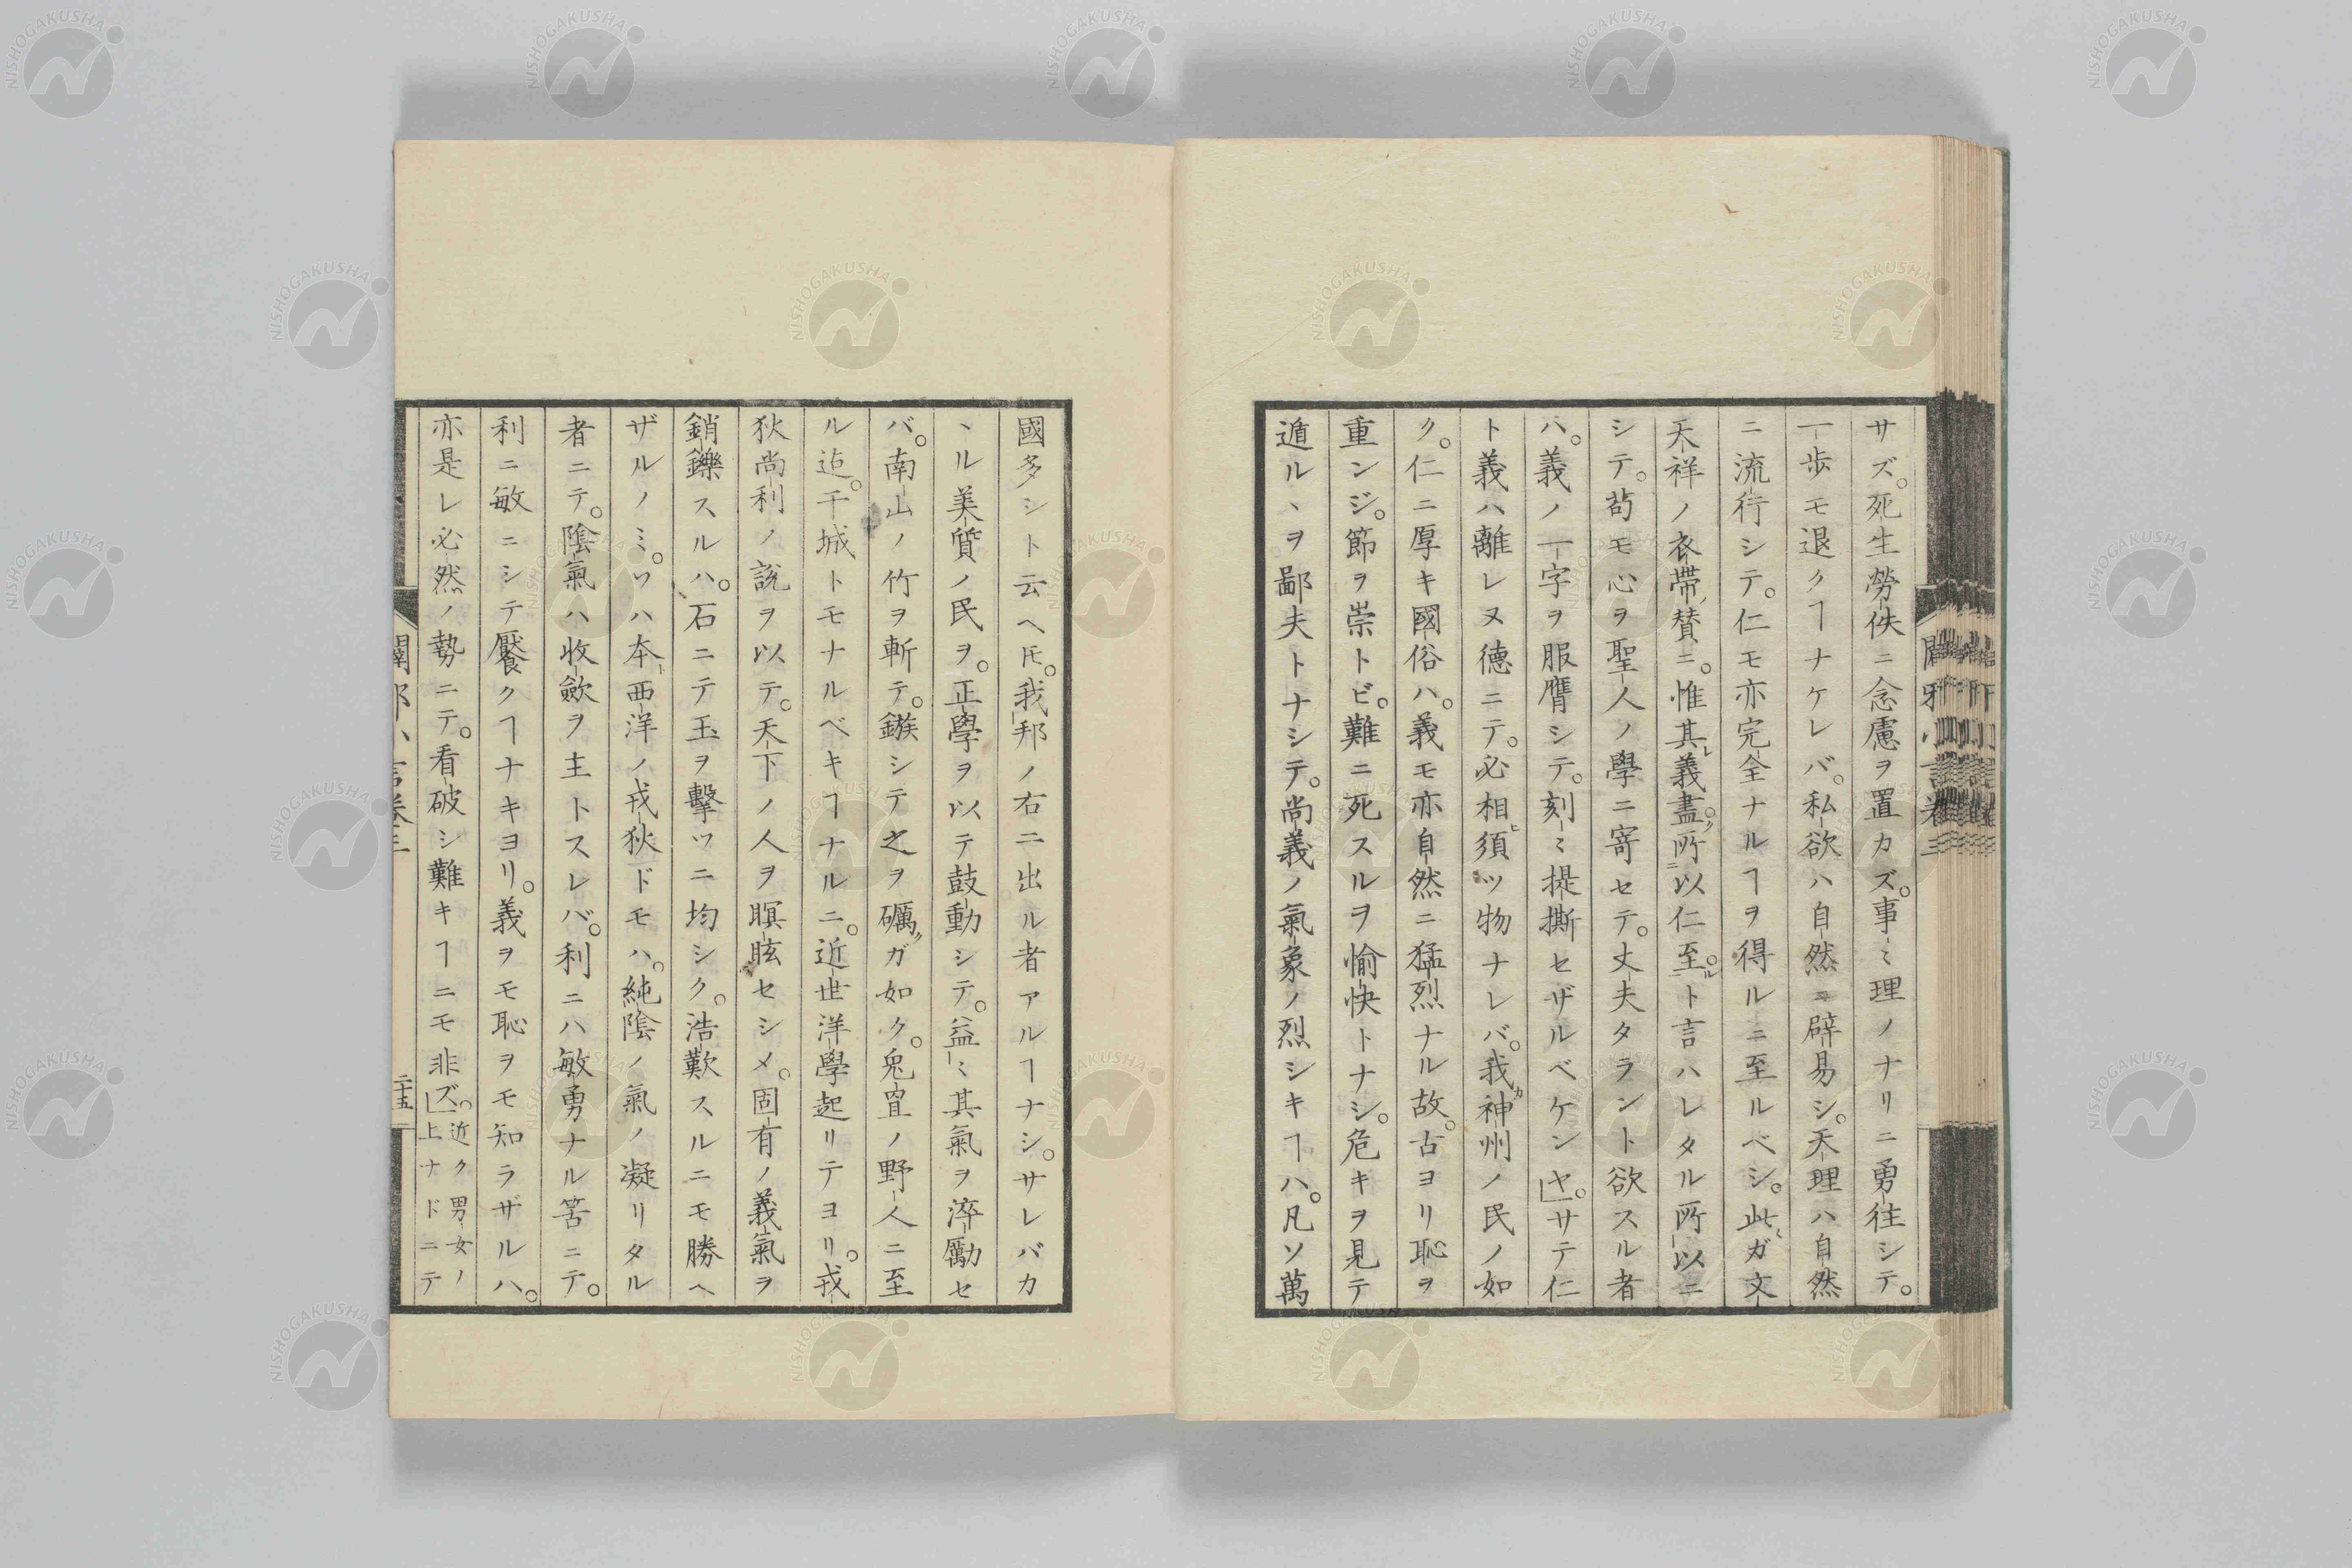 サズ。死生勞佚ニ念慮ヲ置カズ。事ミ理ノナリニ勇往シテ。
一歩モ退クヿナケレバ。私欲ハ自然ニ辟易シ。天理ハ自然
ニ流行シテ。仁モ亦完全ナルヿヲ得ルニ至ルベシ。此ガ文
天祥ノ衣帶贊ニ。惟其義盡。所以仁至。ト言ハレタル所以ニ
シテ。苟モ心ヲ聖人ノ學ニ寄セテ。丈夫タラント欲スル者
ハ。義ノ一字ヲ服膺シテ。刻ミ提撕セザルベケンヤ。」サテ仁
ト義ハ離レヌ德ニテ。必相須ツ物ナレバ。我神州ノ民ノ如
ク。仁ニ厚キ國俗ハ。義モ亦自然ニ猛烈ナル故。古ヨリ恥ヲ
重ンジ。節ヲ崇トビ。難ニ死スルヲ愉快トナシ。危キヲ見テ
遁ルヽヲ鄙夫トナシテ。尚義ノ氣象ノ烈シキヿハ。凡ソ萬
國多シト云ヘ𪜈。我邦ノ右ニ出ル者アルヿナシ。サレバカ
ヽル美質ノ民ヲ。正學ヲ以テ鼓動シテ。益ミ其氣ヲ淬勵セ
バ。南山ノ竹ヲ斬テ。鏃シテ之ヲ礪グガ如ク。兎罝ノ野人ニ至
ル迠。干城トモナルベキヿナルニ。近世洋學起リテヨリ。戎
狄尚利ノ說ヲ以テ。天下ノ人ヲ瞑眩セシメ。固有ノ義氣ヲ
銷鑠スルハ。石ニテ玉ヲ擊ツニ均シク。浩歎スルニモ勝ヘ
ザルノミ。ソハ本西洋ノ戎狄ドモハ。純陰ノ氣ノ凝リタル
者ニテ。陰氣ハ收歛ヲ主トスレバ。利ニハ敏勇ナル筈ニテ。
利ニ敏ニシテ饜クヿナキヨリ。義ヲモ恥ヲモ知ラザルハ。
亦是レ必然ノ勢ニテ。看破シ難キヿニモ非ズ。」近ク男女ノ
上ナドニテ
闢邪小言卷三
二十五